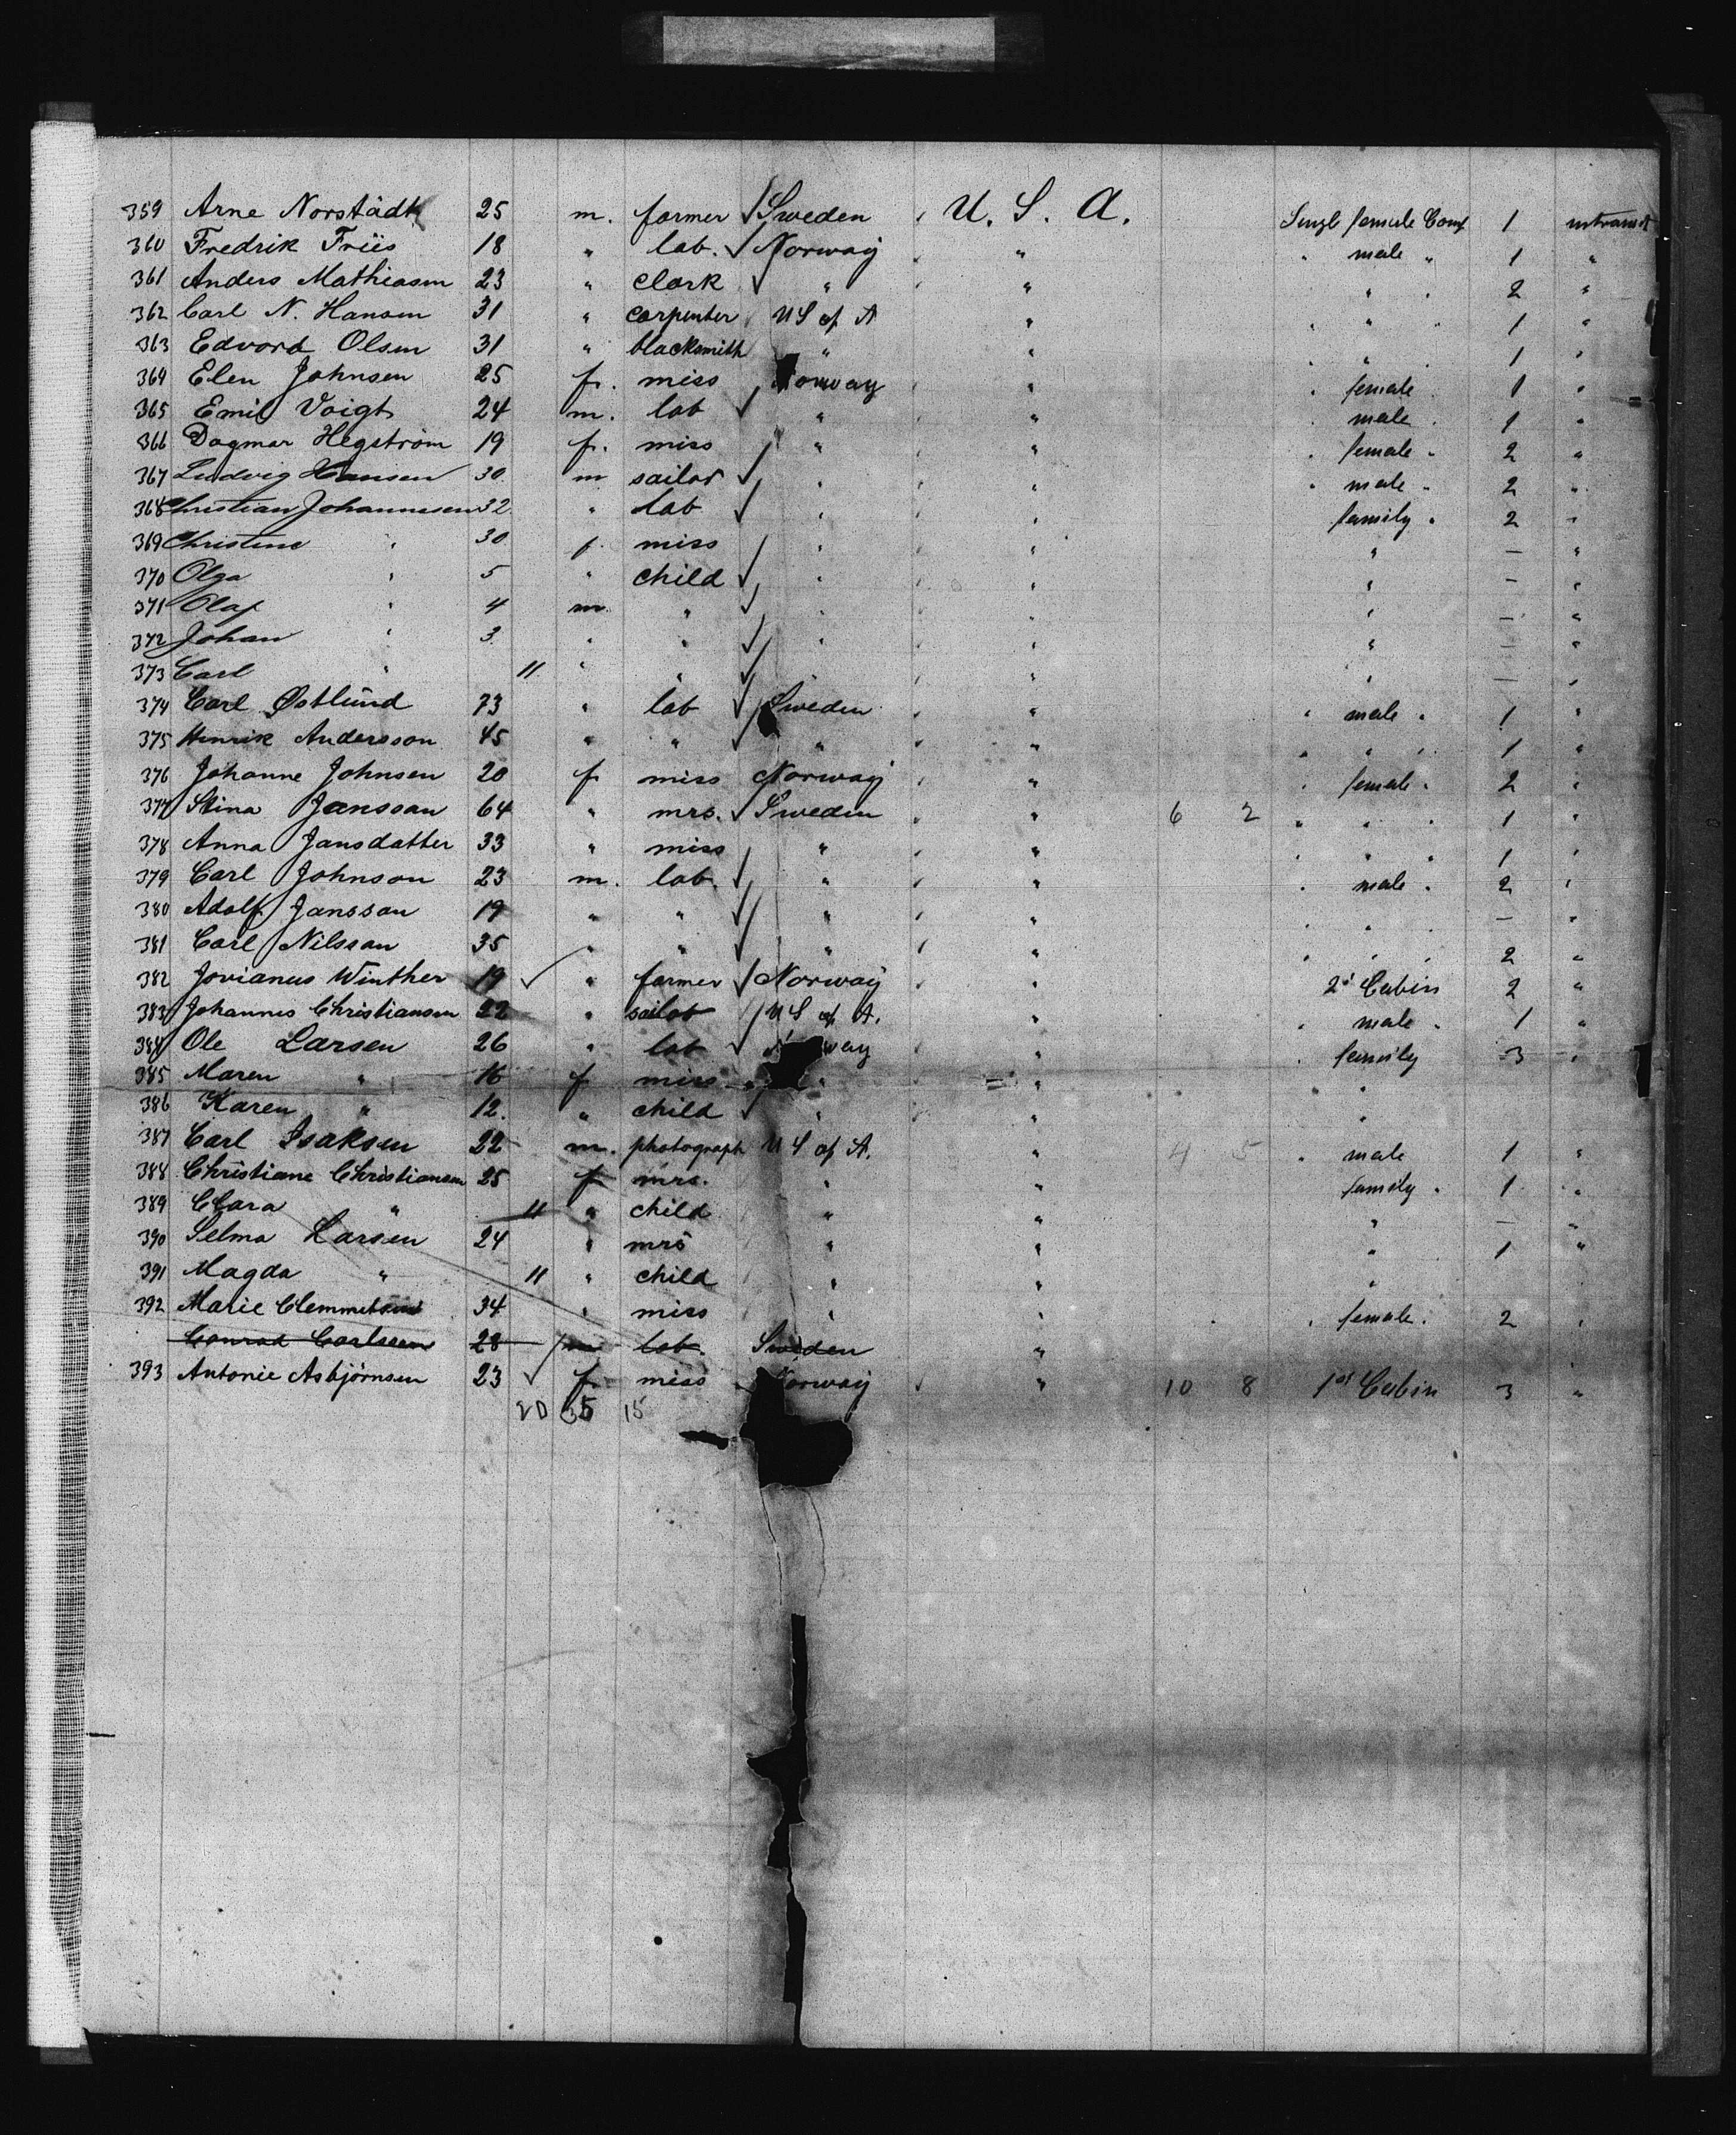 359 Arne Norstädt 25 m. farmer Sweden U. S. A. Singl female Comp 1 intransit
360 Fredrik Friis 18 " lab. Norway " " male " 1 "
361 Anders Mathiasen 23 " Clark " " " " 2 "
362 Carl N. Hansen 31 " carpenter U S of A " " " " 1 "
363 Edvard Olsen 31 " blacksmith " " " " 1 "
364 Elen Johnsen 25 f. miss Norway " " female 1 "
365 Emil Voigt 24 m. lab " " " male " 1 "
366 Dagmar Hegström 19 f. miss " " " female " 2 "
367 Ludvig Hansen 30 m sailor " " " male " 2 "
368 Christian Johannesen 32 " lab " " family " 2 "
369 Christine " 30 f. miss " " " — "
370 Olga " 5 " child " " " — "
371 Olaf " 4 m " " " " — "
372 Johan " 3 " " " " " — "
373 Carl " 11 " " " " " — "
374 Carl Østlund 73 " lab Sweden " " male " 1 "
375 Henrik Andersson 45 " " " " " " " 1 "
376 Johanne Johnsen 20 f miss Norway " " female " 2 "
377 Stina Jansson 64 " mrs. Sweden " 6 2 " " " 1 "
378 Anna Jansdatter 33 " miss " " " " " 1 "
379 Carl Johnson 23 m. lab. " " " male " 2 "
380 Adolf Jansson 19 " " " " " " — "
381 Carl Nilsson 35 " " " " " " " 2 "
382 Jovianus Winther 19 " farmer Norway " 2' Cabin 2 "
383 Johannes Christiansen 22 " sailor U S of A. " " male " 1 "
384 Ole Larsen 26 " lab way " " family 3 "
385 Maren " 16 f miss " " " "
386 Karen " 12. " child " " "
387 Carl Isaksen 22 m. photograph U S of A. " 4 5 " male 1 "
388 Christiane Christiansen 25 f mrs. " " family " 1 "
389 Clara " 11 " child " " " — "
390 Selma Larsen 24 " mrs " " " 1 "
391 Magda " 11 " child " " "
392 Marie Clemmetsen 34 " miss " " " female. 2 "
Conrad Carlsson 28 m lab. Sweden "
393 Antonie Asbjörnsen 23 f miss Norway " 10 8 1st Cabin 3 "
20 35 15